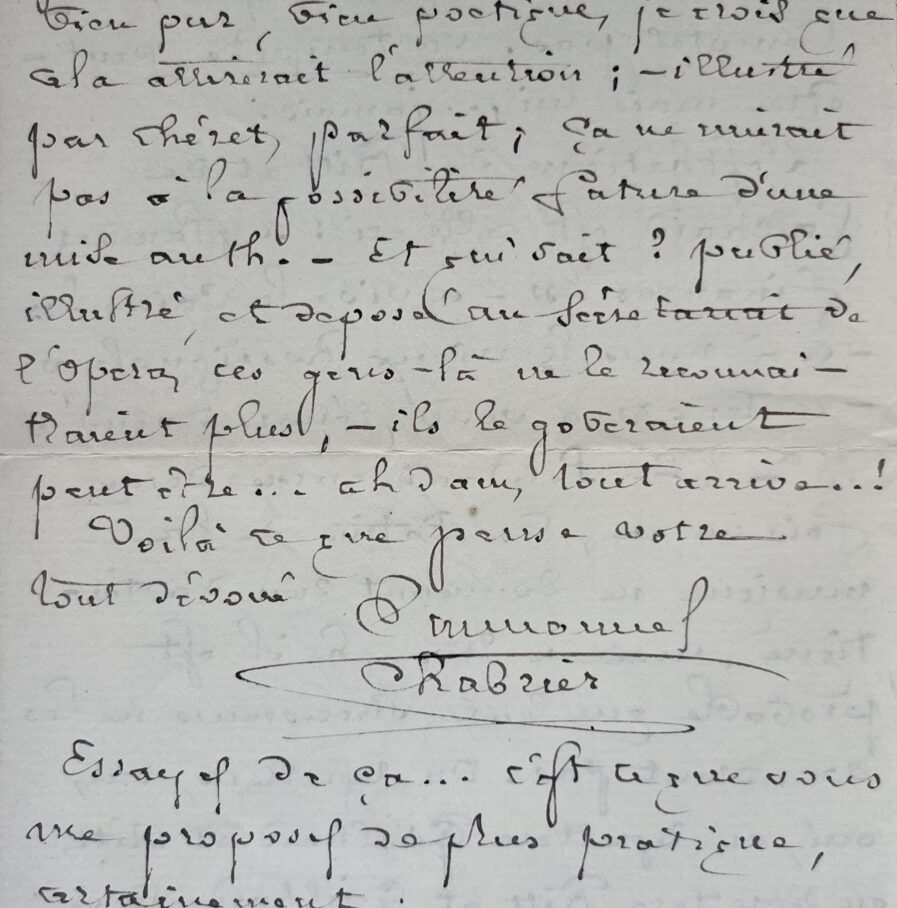 bien pur, bien poétique, je crois que
cela attirerait l'attention ; – illustré
par Chéret, parfait ; ça ne nuirait
pas à la possibilité future d'une
mise au th. – Et qui sait ? publié,
illustré, et déposé au secrétariat de
l'Opéra, ces gens-là ne le reconnaî-
traient plus, – ils le goberaient
peut être... ah dam, tout arrive...!
Voilà ce que pense votre
tout dévoué
Emmanuel
Chabrier
Essayez de ça... c'est ce que vous
me proposez de plus pratique,
certainement.